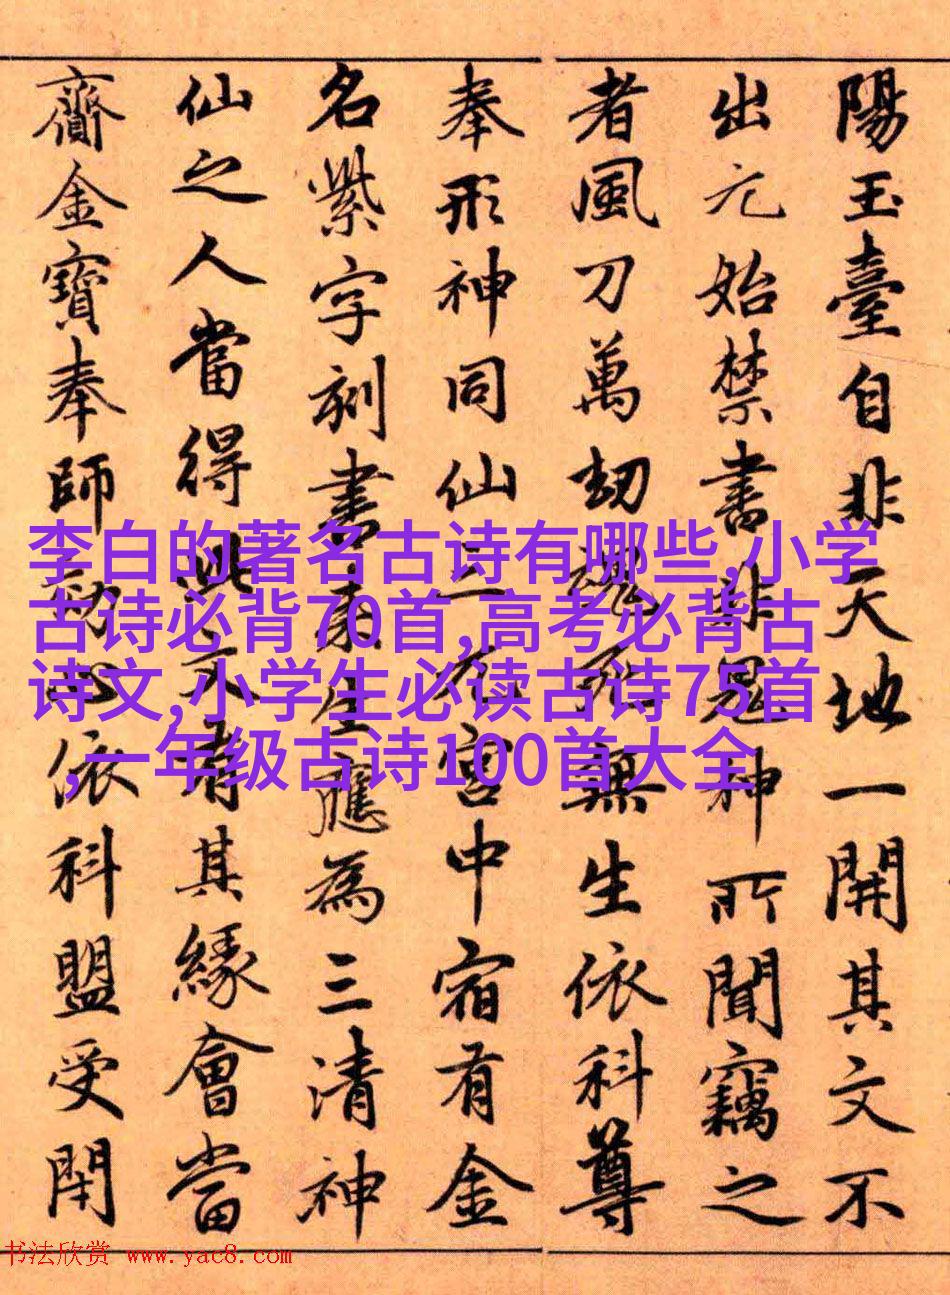 陽玉臺自非天地一開其文不
出元始禁書非鬼神所聞竊之
者風刀萬劫無生依科尊
奉形神同仙宮中宿有金
名紫字刻書應為三清神
仙之人當得此文者其緣會當
齎金寶奉師心依科盟受閇
李白的著名古诗有哪些,小学
古诗必背70首,高考必背古
诗文,小学生必读古诗75首
,一年级古诗100首大全
书法欣赏 www.yac8.com